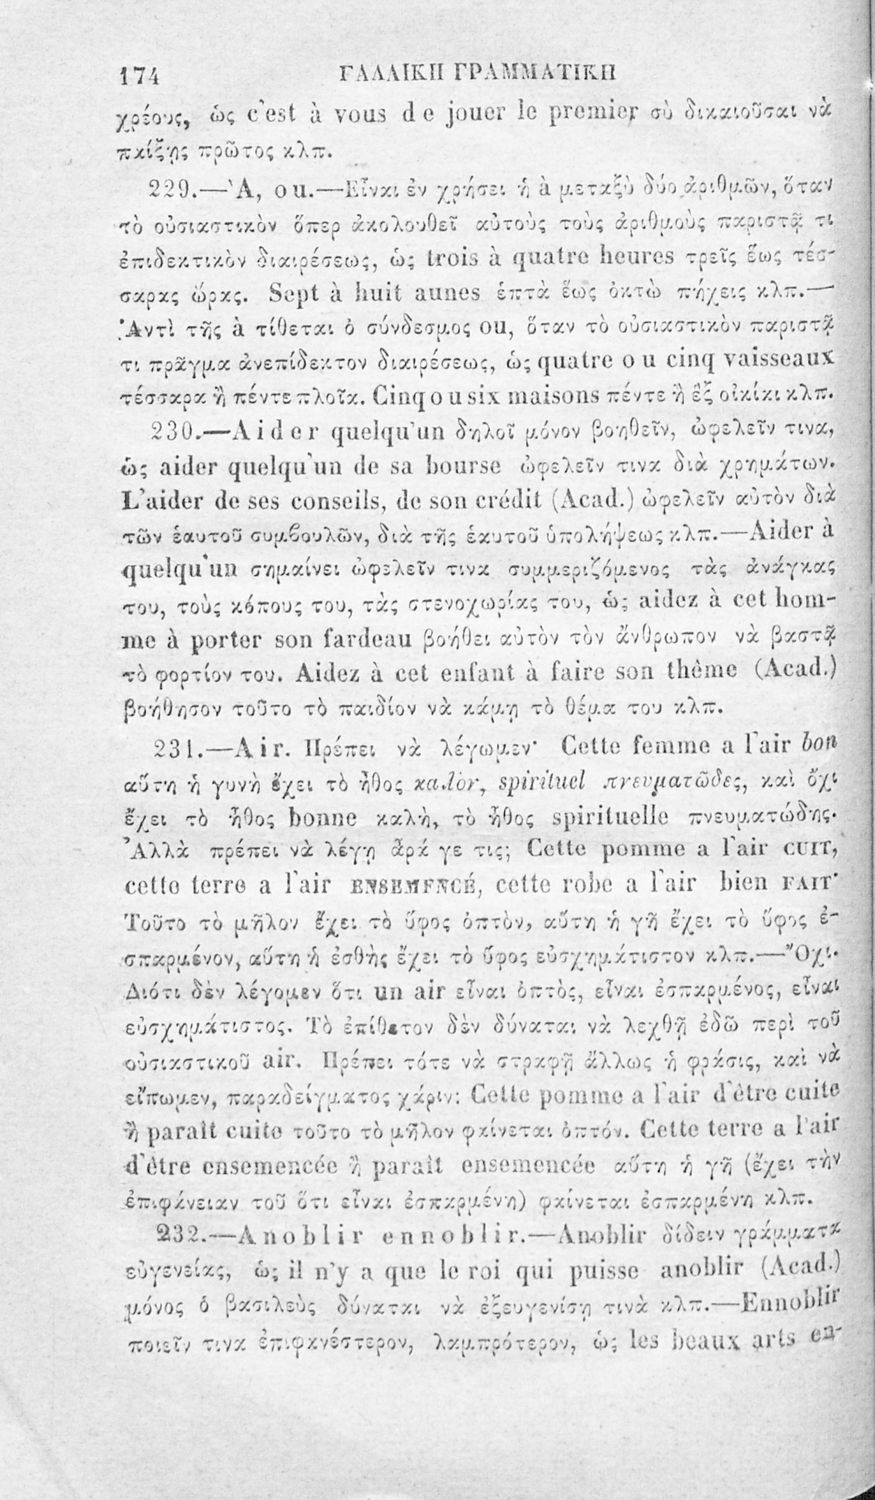 174 ΓΑΛΛΙΚΗ ΓΡΑΜΜΑΤΙΚΗ
χρέους, ὡς c'est à vous de jouer le premier σὺ δικαιοῦσαι νὰ
παίξῃς πρῶτος κλπ.
229.—Ἀ, ou.—Εἶναι ἐν χρήσει ἡ à μεταξὺ δύο ἀριθμῶν, ὅταν
τὸ οὐσιαστικὸν ὅπερ ἀκολουθεῖ αὐτοὺς τοὺς ἀριθμοὺς παριστᾷ τι
ἐπιδεκτικὸν διαιρέσεως, ὡς trois à quatre heures τρεῖς ἕως τέσ-
σαρας ὥρας. Sept à huit aunes ἑπτὰ ἕως ὀκτὼ πήχεις κλπ.—
Ἀντὶ τῆς à τίθεται ὁ σύνδεσμος ou, ὅταν τὸ οὐσιαστικὸν παριστᾷ
τι πρᾶγμα ἀνεπίδεκτον διαιρέσεως, ὡς quatre ou cinq vaisseaux
τέσσαρα ἢ πέντε πλοῖα. Cinq ou six maisons πέντε ἢ ἓξ οἰκίαι κλπ.
230.—Aider quelqu'un δηλοῖ μόνον βοηθεῖν, ὠφελεῖν τινα,
ὡς aider quelqu'un de sa bourse ὠφελεῖν τινα διὰ χρημάτων.
L'aider de ses conseils, de son crédit (Acad.) ὠφελεῖν αὐτὸν διὰ
τῶν ἑαυτοῦ συμβουλῶν, διὰ τῆς ἑαυτοῦ ὑπολήψεως κλπ.—Aider à
quelqu'un σημαίνει ὠφελεῖν τινα συμμεριζόμενος τὰς ἀνάγκας
του, τοὺς κόπους του, τὰς στενοχωρίας του, ὡς aidez à cet hom-
me à porter son fardeau βοήθει αὐτὸν τὸν ἄνθρωπον νὰ βαστᾷ
τὸ φορτίον του. Aidez à cet enfant à faire son thème (Acad.)
βοήθησον τοῦτο τὸ παιδίον νὰ κάμῃ τὸ θέμα του κλπ.
231.—Air. Πρέπει νὰ λέγωμεν· Cette femme a l'air bon
αὕτη ἡ γυνὴ ἔχει τὸ ἦθος καλὸν, spirituel πνευματῶδες, καὶ ὄχι
ἔχει τὸ ἦθος bonne καλὴ, τὸ ἦθος spirituelle πνευματώδης.
Ἀλλὰ πρέπει νὰ λέγῃ ἆρά γε τις; Cette pomme a l'air CUIT,
cette terre a l'air ENSEMENCÉ, cette robe a l'air bien FAIT·
Τοῦτο τὸ μῆλον ἔχει τὸ ὕφος ὀπτὸν, αὕτη ἡ γῆ ἔχει τὸ ὕφος ἐ-
σπαρμένον, αὕτη ἡ ἐσθὴς ἔχει τὸ ὕφος εὐσχημάτιστον κλπ.—Ὄχι.
Διότι δὲν λέγομεν ὅτι un air εἶναι ὀπτὸς, εἶναι ἐσπαρμένος, εἶναι
εὐσχημάτιστος. Τὸ ἐπίθετον δὲν δύναται νὰ λεχθῇ ἐδῶ περὶ τοῦ
οὐσιαστικοῦ air. Πρέπει τότε νὰ στραφῇ ἄλλως ἡ φράσις, καὶ νὰ
εἴπωμεν, παραδείγματος χάριν: Cette pomme a l'air d'être cuite
ἢ parait cuite τοῦτο τὸ μῆλον φαίνεται ὀπτόν. Cette terre a l'air
d'être ensemencée ἢ parait ensemencée αὕτη ἡ γῆ (ἔχει τὴν
ἐπιφάνειαν τοῦ ὅτι εἶναι ἐσπαρμένη) φαίνεται ἐσπαρμένη κλπ.
232.—Anoblir ennoblir.—Anoblir δίδειν γράμματα
εὐγενείας, ὡς il n'y a que le roi qui puisse anoblir (Acad.)
μόνος ὁ βασιλεὺς δύναται νὰ ἐξευγενίσῃ τινὰ κλπ.—Ennoblir
ποιεῖν τινα ἐπιφανέστερον, λαμπρότερον, ὡς les beaux arts en-